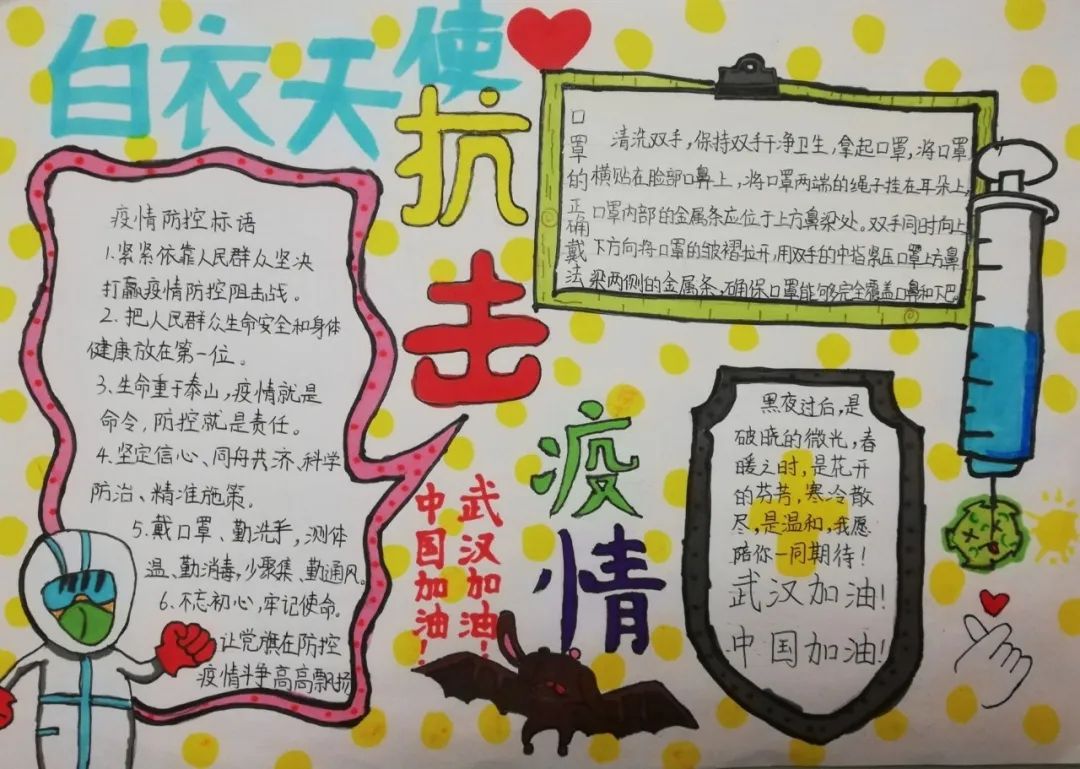 白衣天使
抗击
疫情
疫情防控标语
1.紧紧依靠人民群众坚决
打赢疫情防控阻击战。
2.把人民群众生命安全和身体
健康放在第一位。
3.生命重于泰山，疫情就是
命令，防控就是责任。
4.坚定信心、同舟共济、科学
防治、精准施策。
5.戴口罩、勤洗手，测体
温、勤消毒，少聚集、勤通风。
6.不忘初心，牢记使命。
让党旗在防控
疫情斗争高高飘扬
口罩的正确戴法
清洗双手，保持双手干净卫生，拿起口罩，将口罩
横贴在脸部口鼻上，将口罩两端的绳子挂在耳朵上，
口罩内部的金属条应位于上方鼻梁处。双手同时向上
下方向将口罩的皱褶拉开，用双手的中指紧压口罩上方鼻
梁两侧的金属条，确保口罩能够完全覆盖口鼻和下巴。
武汉加油！
中国加油！
黑夜过后，是
破晓的微光，春
暖之时，是花开
的芬芳，寒冷散
尽，是温和，我愿
陪你一同期待！
武汉加油！
中国加油！